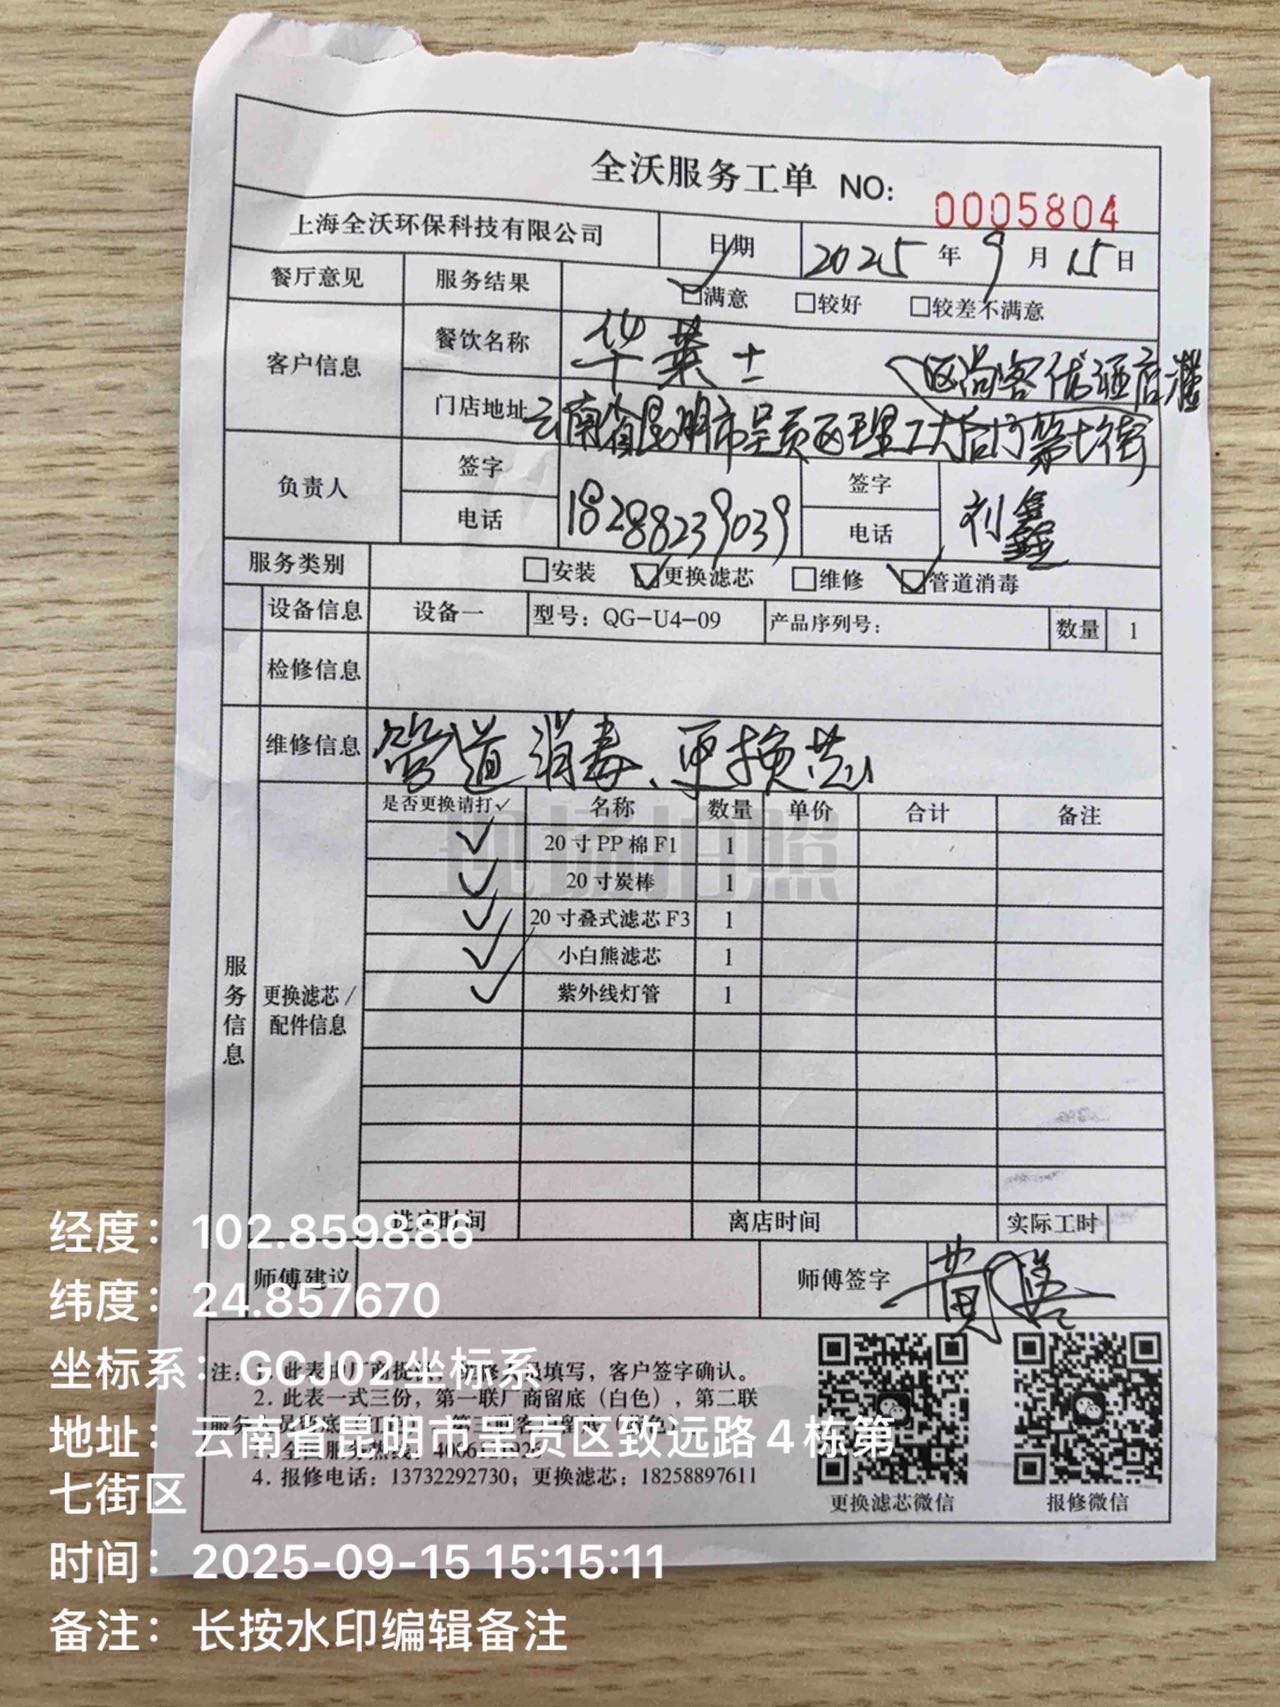 全沃服务工单 NO: 0005804
上海全沃环保科技有限公司 日期 2025年9月15日
餐厅意见 服务结果 ☑满意 □较好 □较差不满意
客户信息 餐饮名称 华莱士
区尚客优酒店楼
门店地址 云南省昆明市呈贡区理工大后门第七街
负责人 签字 签字 刘鑫
电话 18288239039 电话
服务类别 □安装 ☑更换滤芯 □维修 ☑管道消毒
设备信息 设备一 型号：QG-U4-09 产品序列号： 数量 1
检修信息
维修信息 管道消毒、更换芯
是否更换请打✓ 名称 数量 单价 合计 备注
✓ 20寸PP棉F1 1
✓ 20寸炭棒 1
✓ 20寸叠式滤芯F3 1
✓ 小白熊滤芯 1
✓ 紫外线灯管 1
服务信息
更换滤芯/
配件信息
现场拍照
进店时间 离店时间 实际工时
师傅建议 师傅签字 黄
注：1. 此表由厂商提供，填写，客户签字确认。
2. 此表一式三份，第一联厂商留底（白色），第二联
4. 报修电话：13732292730；更换滤芯：18258897611
更换滤芯微信 报修微信
经度：102.859886
纬度：24.857670
坐标系：GCJ02坐标系
地址：云南省昆明市呈贡区致远路4栋第
七街区
时间：2025-09-15 15:15:11
备注：长按水印编辑备注